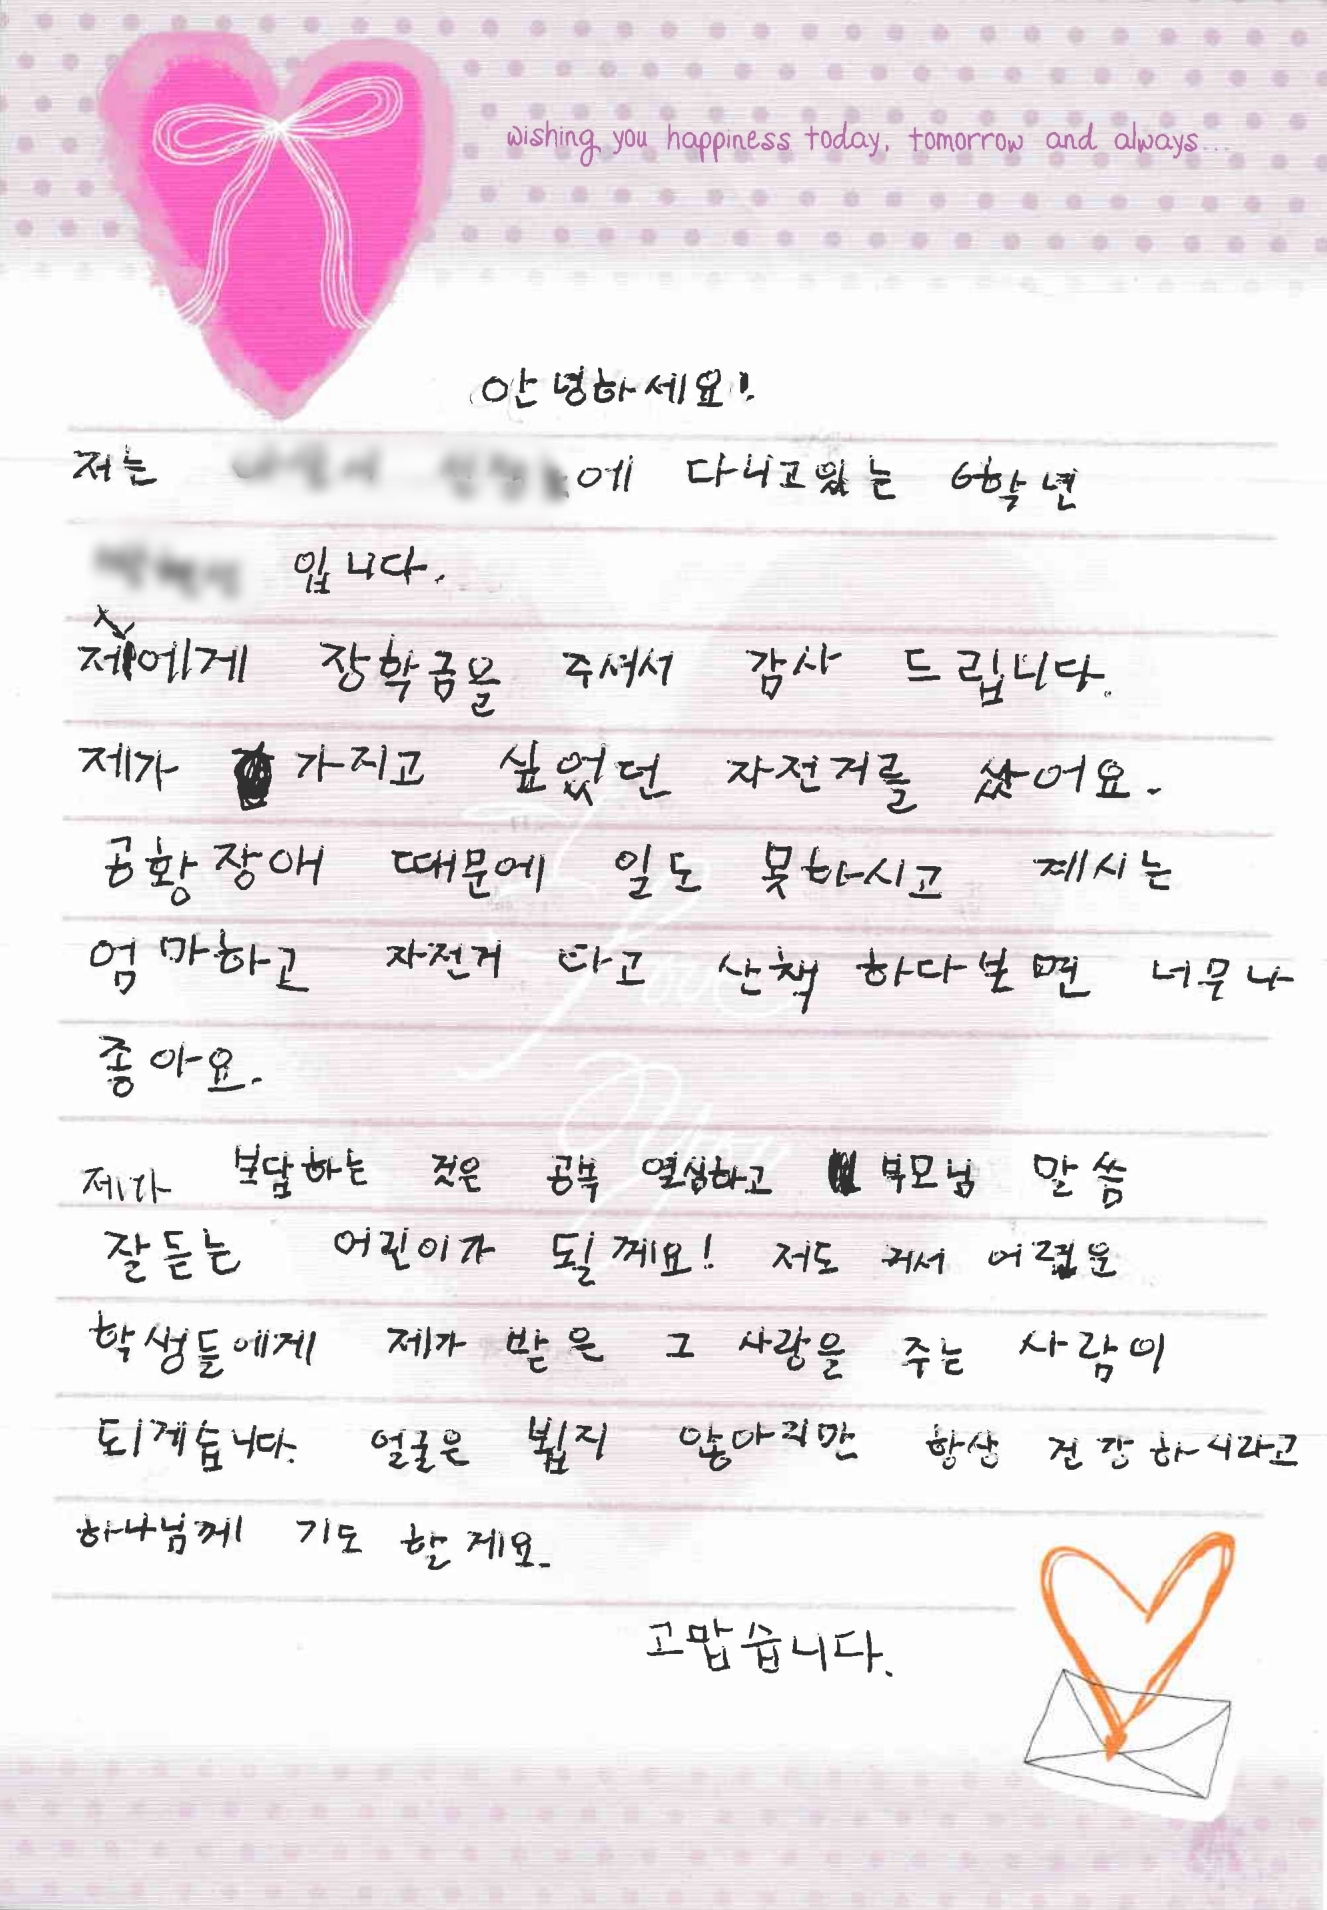 wishing you happiness today, tomorrow and always...
안녕하세요!
저는 에 다니고있는 6학년
입니다.
저에게 장학금을 주셔서 감사 드립니다.
제가 가지고 싶었던 자전거를 샀어요.
공황장애 때문에 일도 못하시고 계시는
엄마하고 자전거 타고 산책 하다보면 너무나
좋아요.
제가 보답하는 것은 공부 열심하고 부모님 말씀
잘듣는 어린이가 될께요! 저도 커서 어려운
학생들에게 제가 받은 그 사랑을 주는 사람이
되게습니다. 얼굴은 뵙지 않아지만 항상 건강하시라고
하나님께 기도 할게요.
고맙습니다.